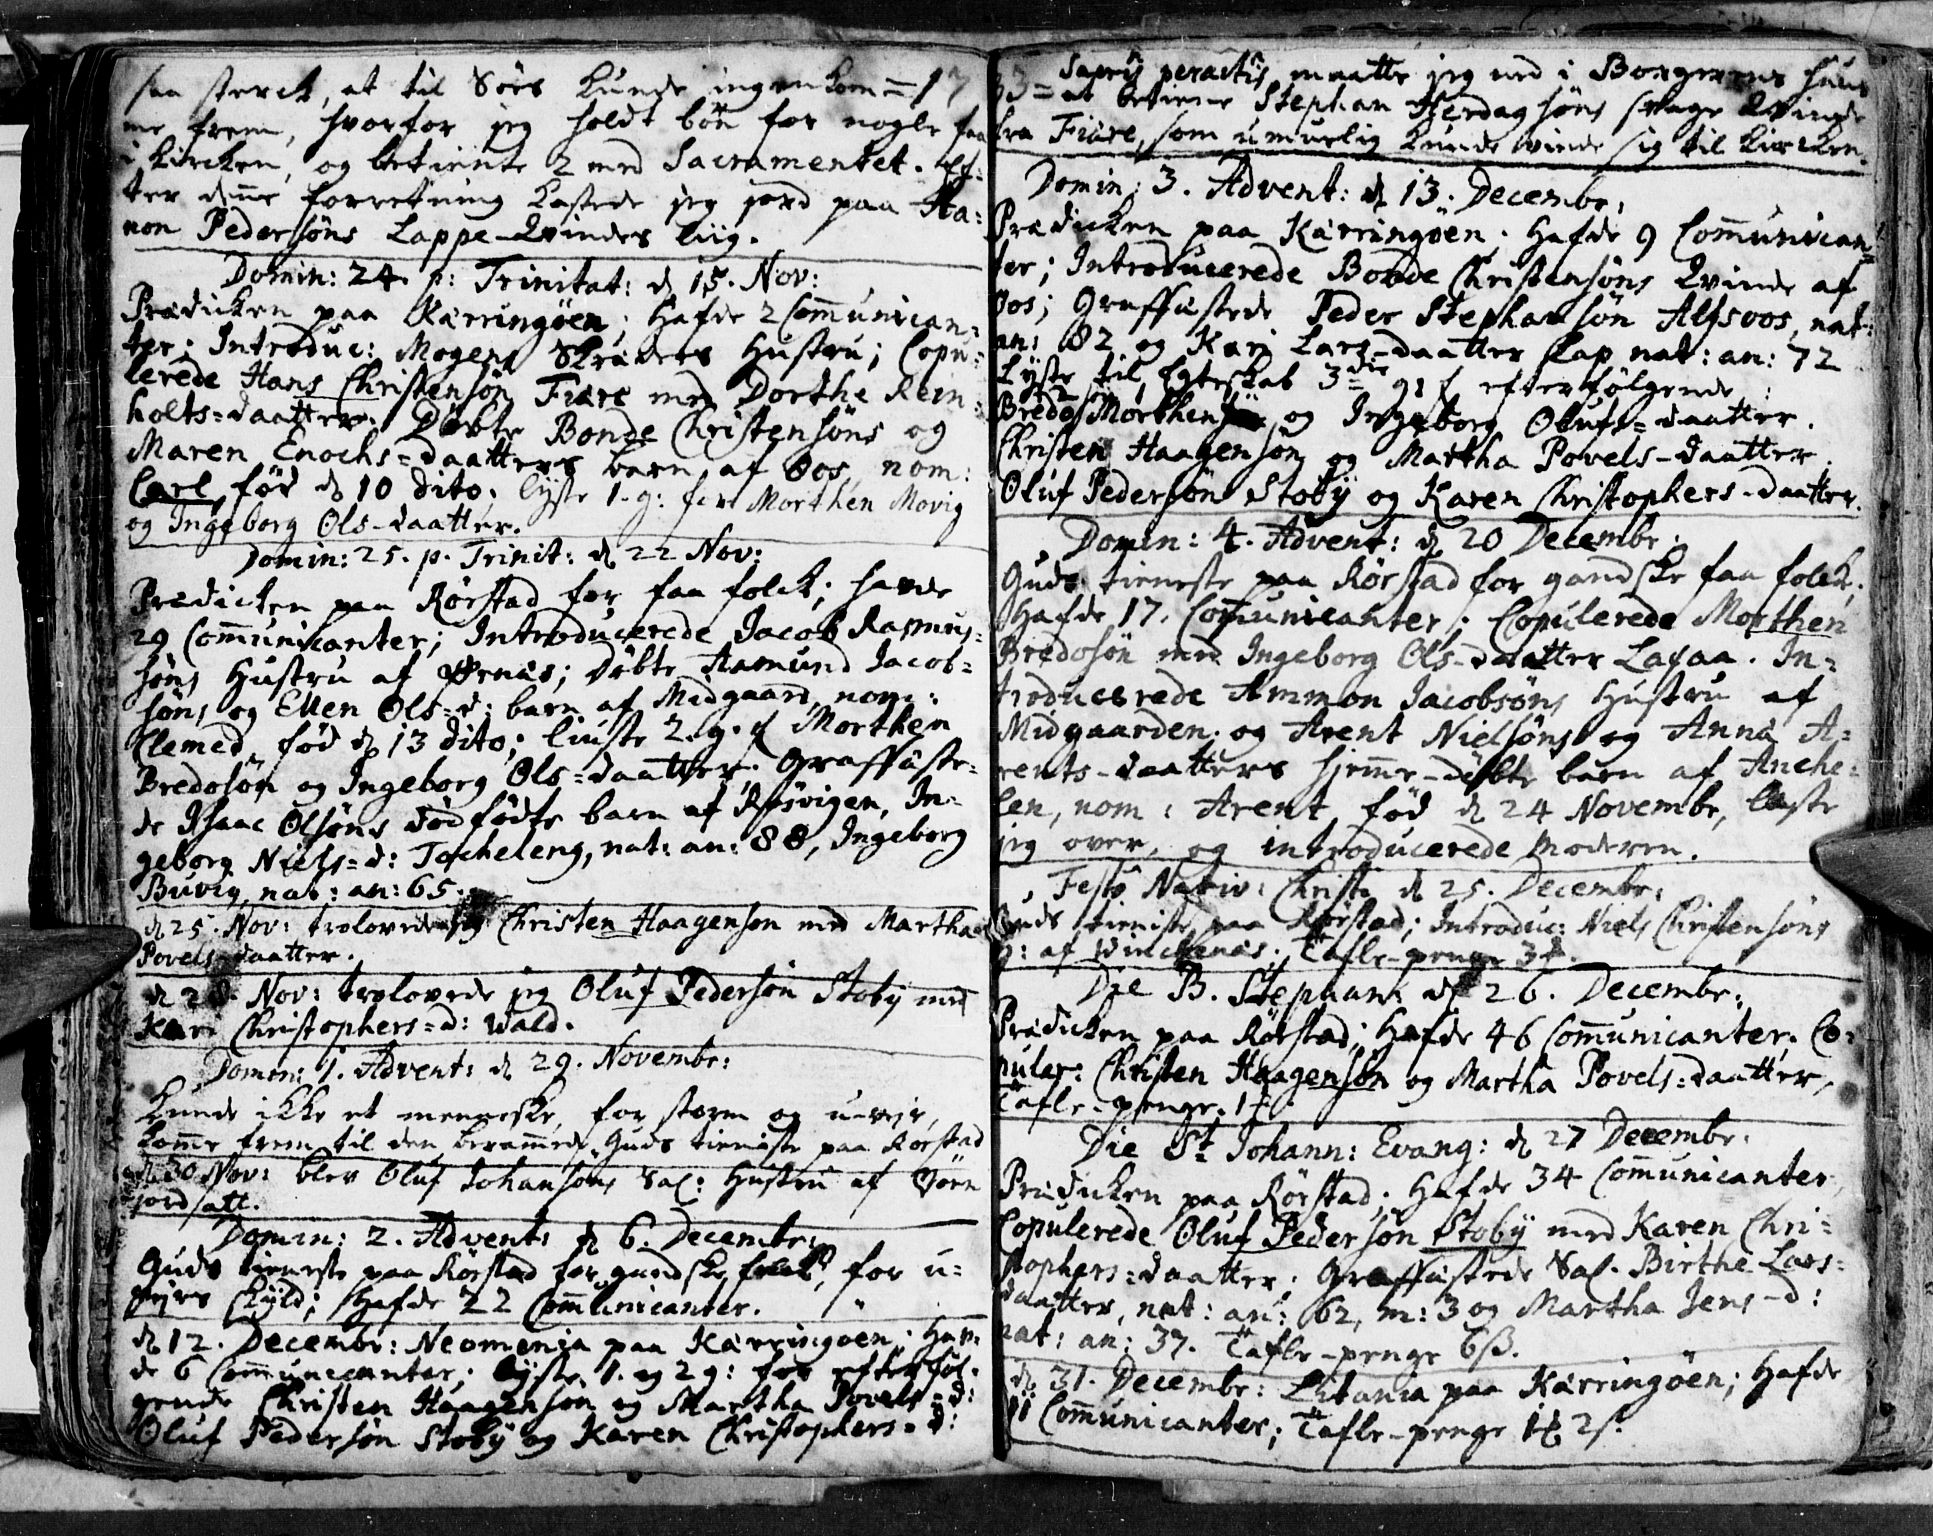 saa sterck, at til Söes kunde ingen kom=
me frem, hvorfor jeg holdt bön for nogle faa
i kircken, og betiente 2 med Sacramentet. Ef=
ter denne forretning kastede jeg jord paa Ha=
non Pedersöns Lappe-Qvindes liig.
Domin: 24. p: Trinitat: d. 15. Nov:
Prædicken paa Kærringöen; Hafde 2 Com̄unican=
ter; Introduc: Mogens Skræders Hustru; Copu=
lerede Hans Christensön Fiære med Dorthe Rein=
holts=daatter. Döbte Bonde Christensöns og
Maren Enochs=daatters barn af Oos, nom:
Carl, föd d. 10 dito; lyste 1. g: for Morthen Movig
og Ingeborg Ols-daatter.
Domin: 25. p. Trinit: d. 22 Nov:
Prædicken paa Rörstad for faa folck; havde
29 Com̄unicanter; Introducerede Jacob Rasmus=
söns Hustru af Örnæs; döbte Aamund Jacob=
söns og Ellen Ols=d: barn af Midgaard, nom:
Clemed, föd d. 13 dito; liuste 2. g. f. Morthen
Bredosön og Ingeborg Ols=daatter. Graffäste=
de Isaac Olsöns dödfödte barn af Rösvigen, In=
geborg Niels=d: Tocheleng, nat: an: 88, Ingeborg
Buvig, nat: an: 65.
d. 25. Nov: trolovede jeg Christen Haagensön med Martha
Povels-daatter.
Nov: trolovede jeg Oluf Pedersön Stobÿ med
Kari Christophers=d: Wald.
Domin: 1. Advent: d. 29. Novembr:
Kunde ikke et menneske, for storm og u-vejr,
komme frem til den beram̄ede Guds tieniste paa Rörstad
d. 30 Nov: blev Oluf Johansöns Sal: Hustru af Björn
jordsatt.
Domin: 2. Advent: d. 6. Decembr:
Guds tieneste paa Rörstad for gandske faa folck, for u=
vejrs skyld; Hafde 22 Com̄unicanter.
d. 12. Decembr: Neomenia paa Kærringöen; Haf=
de 6 Com̄unicanter; lyste 1. og 2 g: for efterföl=
gende Christen Haagensön og Martha Povels=d:
Oluf Pedersön Stobÿ og Karen Christophers=d:
Sacris peractis maatte jeg ned i Borgerens huus
at betiene Stephan Herdagsöns svage Qvinde
fra Fiære, som umuelig kunde vinde sig til kircken.
Domin: 3. Advent: d. 13. Decembr:
Prædicken paa Kærringöen; Hafde 9 Com̄unican=
ter; Introducerede Bonde Christensöns Qvinde af
Oos; Graffästede Peder Stephansön Alfsvos, nat:
an: 82 og Kari Lars-daatter Slap nat: an: 72
Lyste til Egteskab 3die g: f efterfölgende:
Bredo Morthensön og Ingeborg Olufs=daatter.
Christen Haagensön og Martha Povels-daatter.
Oluf Pedersön Stobÿ og Karen Christophers-daatter.
Domin: 4. Advent: d. 20 Decembr:
Guds tieneste paa Rörstad for gandske faa folck.
Hafde 17. Com̄unicanter; Copulerede Morthen
Bredosön med Ingeborg Ols-daatter Lafaa. In=
troducerede Ammon Jacobsöns Hustru af
Midgaarden; og Arent Nielsöns og Anna A=
rents-daatters hjem̄e-döbte barn af Anche=
len, nom: Arent, föd d. 24 Novembr, læste
jeg over, og introducerede moderen.
Festo Nativ: Christi d. 25. Decembr:
Guds tieniste paa Rörstad; Introduc: Niels Christensöns
af Winckenæs; Tafle-penge
Die B. Stephani d. 26. Decembr:
Prædicken paa Rörstad; Hafde 46 Com̄unicanter. Co=
puler: Christen Haagensön og Martha Povels=daatter,
Tafle-penge.
Die St Johann: Evang: d. 27 Decembr:
Prædicken paa Rörstad; Hafde 34 Com̄unicanter,
Copulerede Oluf Pedersön Stobÿ med Karen Chri=
stophers=daatter; Graffästede Sal. Birthe Lars=
daatter, nat: an: 62, m: 3 og Martha Jens-d:
nat: an: 37. Tafle-penge 6 ß.
d. 31. Decembr: Litania paa Kærringöen; Hafde
11 Com̄unicanter; Tafle-penge